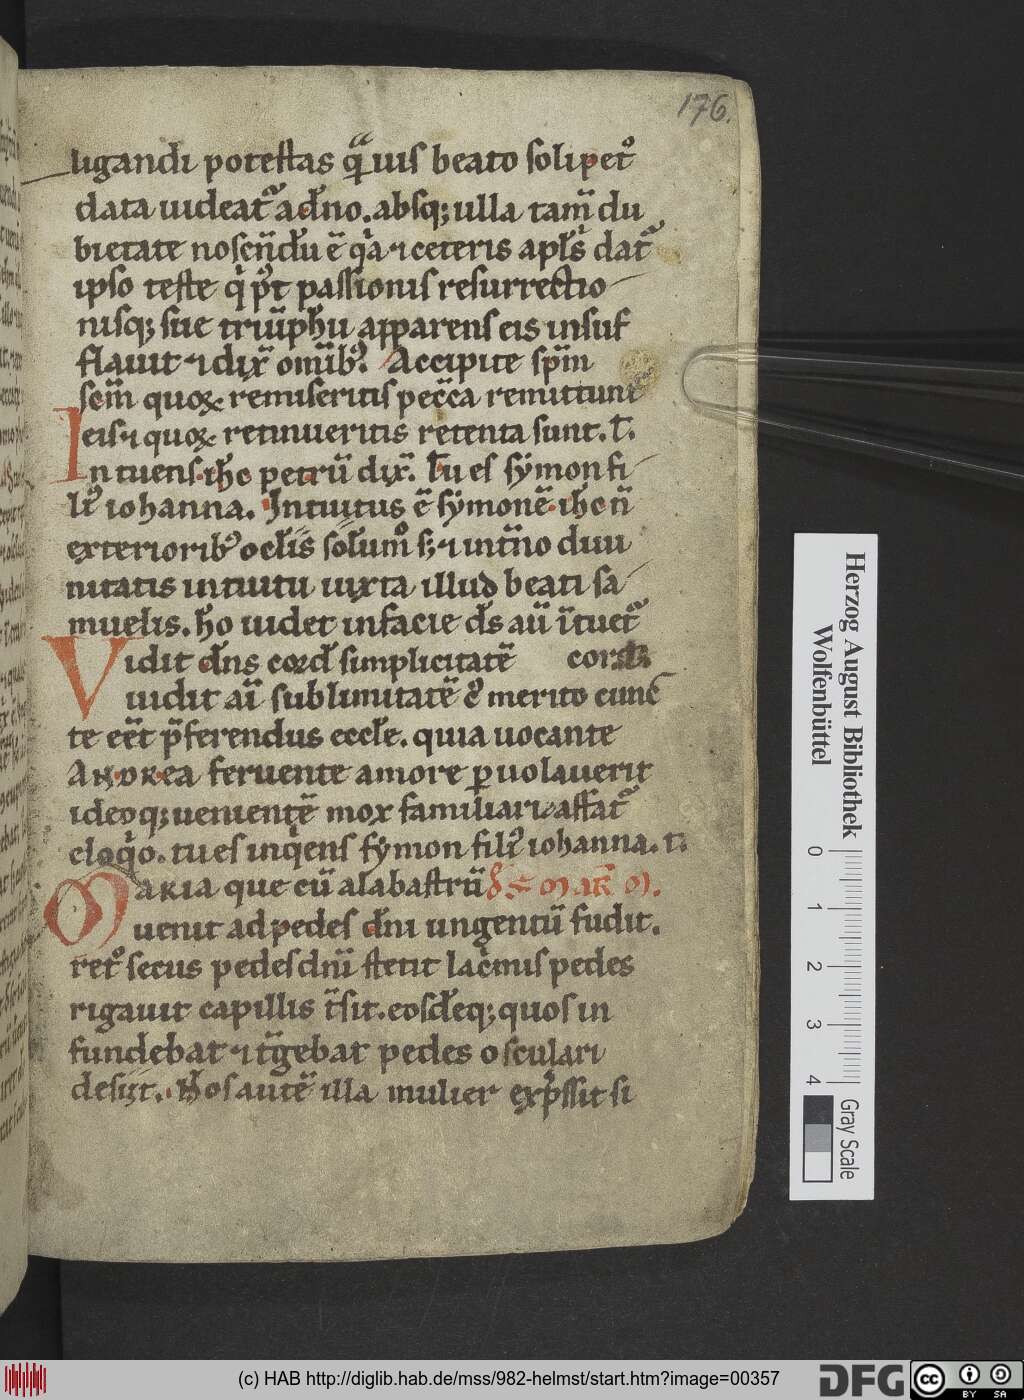 176.
ligandi potestas q̄uis beato soli pet᷒
data uideat᷑ a dn̄o. absq; ulla tam̄ du
bietate nosc̄ndū ē q̇a ⁊ ceteris apl̄s dat᷑
ipso teste q̇ p᷒t passionis resurrectio
nisq; sue triūphū apparens eis insuf
flauit ⁊ dix̄ omīb᷒. Accipite sp̄m
sc̄m quoꝝ remiseritis pec̄ca remittunt᷑
eis ⁊ quoꝝ retinueritis retenta sunt. t̄.
Intuens ih̄c petrū dix̄. Tu es sẏmon fi
li᷒ iohanna. Intuitus ē sẏmonē ih̄c n̄
exteriorib᷒ oclīs solūm° s; ⁊ int̄no diui
nitatis intuitu iuxta illud beati sa
muelis. ho᷒ uidet in facie ds̄ aū ītuet᷑
Vidit dn̄s cord̄ simplicitatē cordis
uidit aī sublimitatē q᷒ merito cunc
te eēt p̄ferendus eccłe. quia uocante
Andrea feruente amore ꝑuolauerit
ideoq; uenientē mox familiari affat᷑
eloq̇o. tu es inqens sẏmon fili᷒ iohanna. t̄.
Maria que cū alabastrū de S. MAR̄ M.
uenit ad pedes dn̄i ungentū fudit.
ret᷒ secus pedes dnī stetit lac̄mis pedes
rigauit capillis t̄sit. eosdeq; quos in
fundebat ⁊ tḡebat pedes osculari
desijt. Hos autē illa mulier exp̄ssit si
Herzog August Bibliothek
Wolfenbüttel
0 1 2 3 4
Gray Scale
(c) HAB http://diglib.hab.de/mss/982-helmst/start.htm?image=00357
DFG
CC BY SA